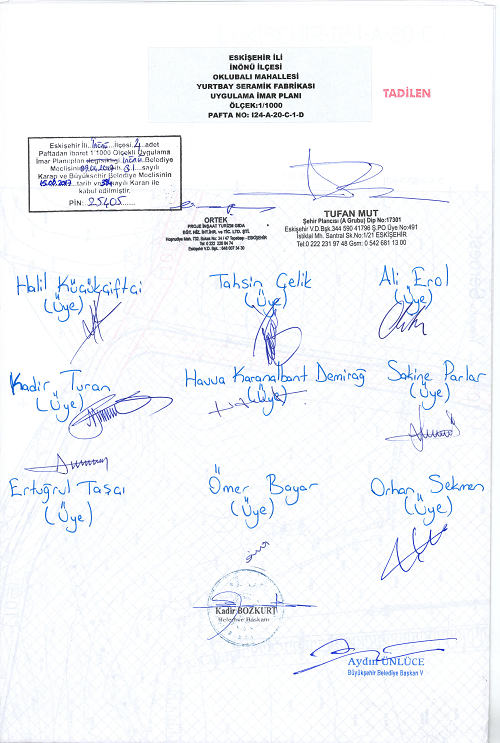 ESKİŞEHİR İLİ
İNÖNÜ İLÇESİ
OKLUBALI MAHALLESİ
YURTBAY SERAMİK FABRİKASI
UYGULAMA İMAR PLANI
ÖLÇEK:1/1000
PAFTA NO: I24-A-20-C-1-D
TADİLEN
Eskişehir İli İnönü İlçesi 4 adet
Paftadan ibaret 1/1000 Ölçekli Uygulama
İmar Planı/plan değişikliği İnönü Belediye
Meclisinin tarih sayılı
Kararı ve Büyükşehir Belediye Meclisinin
tarih ve sayılı Kararı ile
kabul edilmiştir.
PİN: 25405
ORTEK
PROJE İNŞAAT TURİZM GIDA
TUFAN MUT
Şehir Plancısı (A Grubu) Dip No:17301
Eskişehir V.D.Bşk.344 590 41796 Ş.PO Üye No:491
İstiklal Mh. Santral Sk.No:1/21 ESKİŞEHİR
Tel:0 222 231 97 48 Gsm: 0 542 681 13 00
Halil Küçükçiftçi
(Üye)
Tahsin Çelik
(Üye)
Ali Erol
(Üye)
Kadir Turan
(Üye)
Havva Karanalbant Demirağ
(Üye)
Sakine Parlar
(Üye)
Ertuğrul Taşçı
(Üye)
Ömer Bayar
(Üye)
Orhan Sekmen
(Üye)
Kadir BOZKURT
Belediye Başkanı
Aydın ÜNLÜCE
Büyükşehir Belediye Başkan V